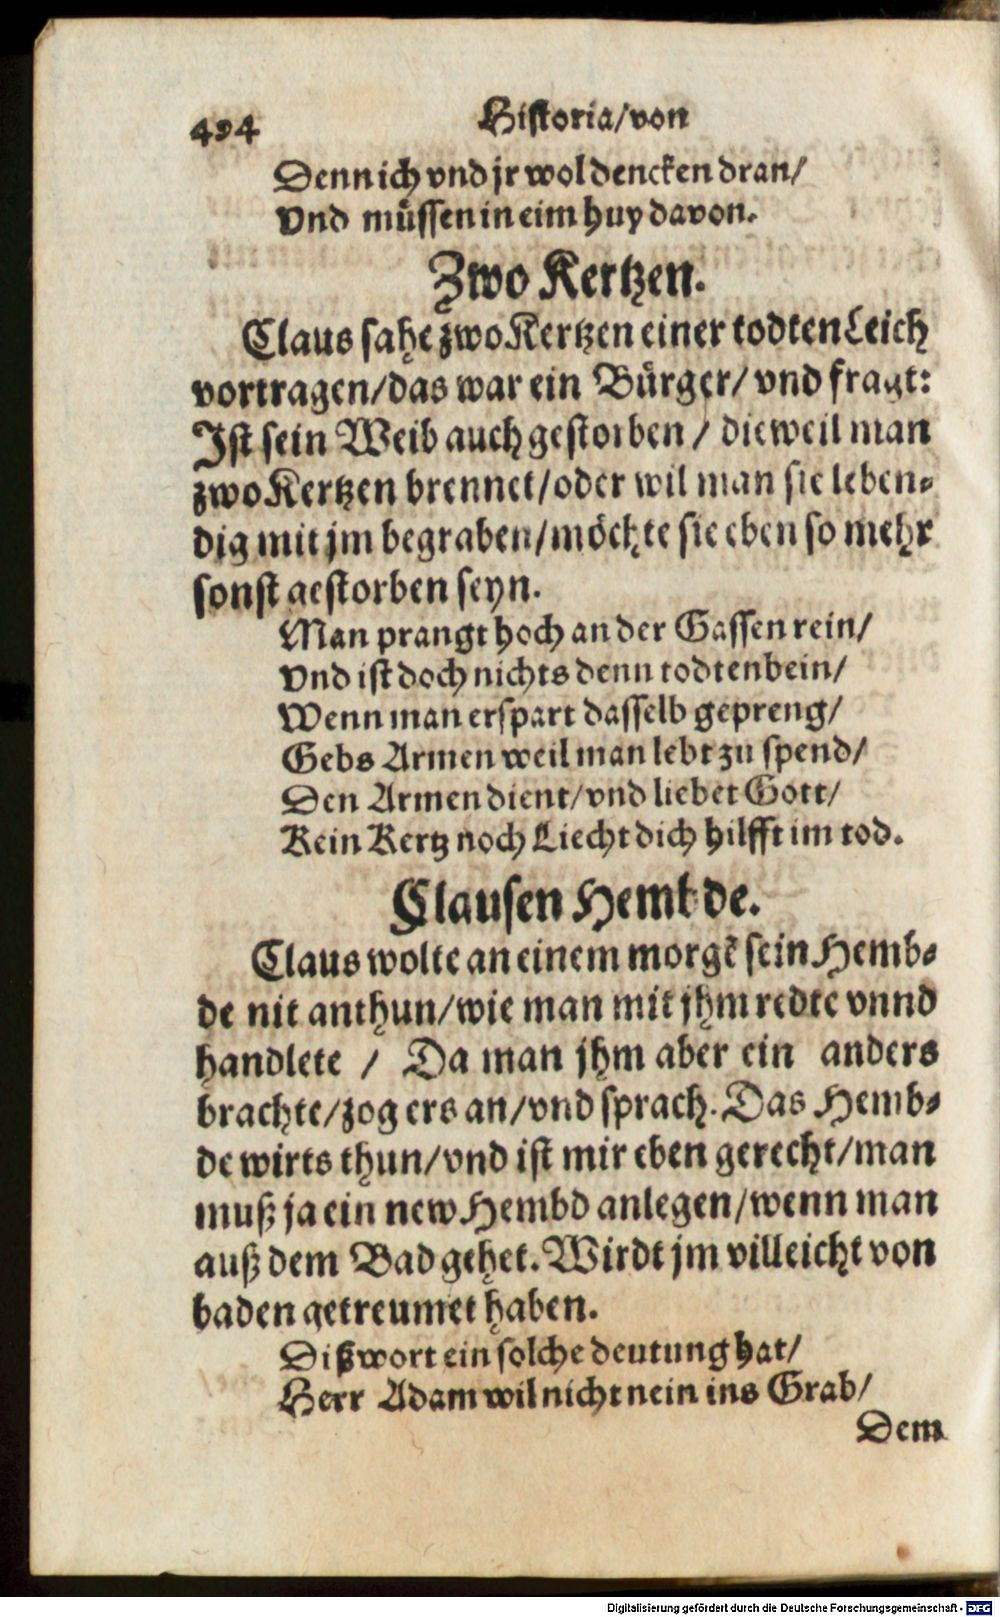 494 Historia/von
Denn ich vnd jr wol dencken dran/
Vnd müssen in eim huy davon.
Zwo Kertzen.
Claus sahe zwo Kertzen einer todten Leich
vortragen/das war ein Bürger/ vnd fragt:
Ist sein Weib auch gestorben / dieweil man
zwo Kertzen brennet/oder wil man sie leben-
dig mit jm begraben/möchte sie eben so mehr
sonst gestorben seyn.
Man prangt hoch an der Gassen rein/
Vnd ist doch nichts denn todtenbein/
Wenn man erspart dasselb gepreng/
Gebs Armen weil man lebt zu spend/
Den Armen dient/vnd liebet Gott/
Kein Kertz noch Liecht dich hilfft im tod.
Clausen Hembde.
Claus wolte an einem morgē sein Hemb-
de nit anthun/wie man mit jhm redte vnnd
handlete / Da man jhm aber ein anders
brachte/zog ers an/vnd sprach. Das Hemb-
de wirts thun/vnd ist mir eben gerecht/man
muß ja ein new Hembd anlegen/wenn man
auß dem Bad gehet. Wirdt jm villeicht von
baden getreumet haben.
Diß wort ein solche deutung hat/
Herr Adam wil nicht nein ins Grab/
Dem
Digitalisierung gefördert durch die Deutsche Forschungsgemeinschaft - DFG